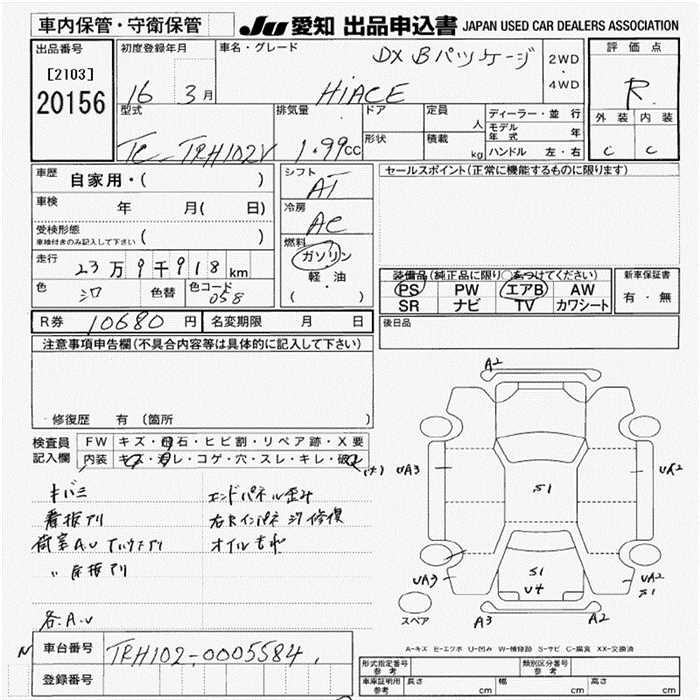 車内保管・守衛保管
JU 愛知 出品申込書 JAPAN USED CAR DEALERS ASSOCIATION
出品番号
[2103]
20156
初度登録年月
16 3月
車名・グレード
DX Bパッケージ
HiACE
2WD
・
4WD
評価点
R
外装 内装
C C
型式
TC-TRH102V
排気量
1.99cc
ドア
形状
定員
人
積載
kg
ディーラー・並行
モデル年式 年
ハンドル 左・右
車歴 自家用・( )
車検 年 月( 日)
受検形態
車検付きのみ記入して下さい ( )
走行 23万9千918km
色 シロ 色替 色コード 058
シフト
AT
冷房
AC
燃料
ガソリン
軽・油
( )
セールスポイント(正常に機能するものに限ります)
装備品(純正品に限り○をつけてください)
PS PW エアB AW
SR ナビ TV カワシート
新車保証書
有・無
R券 10680円 名変期限 月 日
後日品
注意事項申告欄(不具合内容等は具体的に記入して下さい)
修復歴 有 (箇所 )
検査員
記入欄
FW キズ・飛石・ヒビ割・リペア跡・X要
内装 キズ・汚レ・コゲ・穴・スレ・キレ・破レ
キバミ エンドパネル歪み
看板アリ 右Rインパネ
オイルモレ
床板アリ
各A.U
A2
UA3
UA2
S1
S1
U4
UA3
UA2
S1
スペア
A3
A2
A-キズ E-エクボ U-凹み W-補修跡 S-サビ C-腐食 XX-交換済
車台番号 TRH102-0005584
登録番号
形式指定番号
参考
類別区分番号
参考
車庫証明用
参考
長さ cm 幅 cm 高さ cm